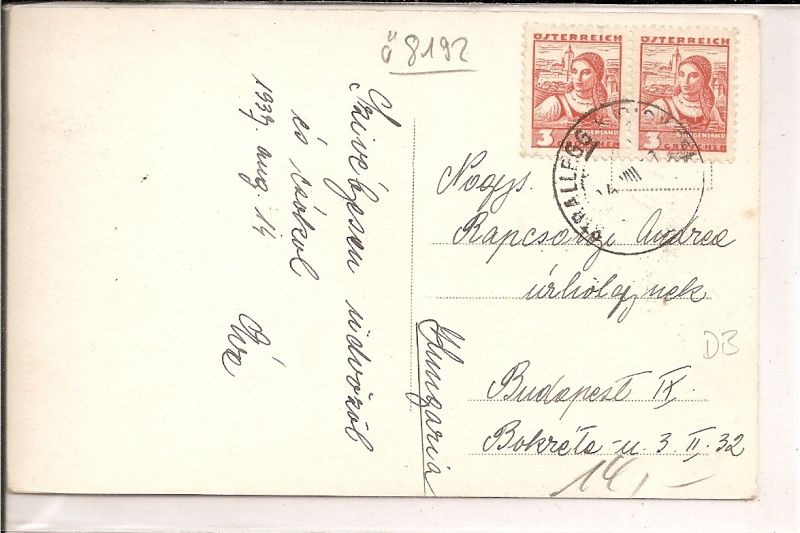 ö 8192
Szivélyesen üdvözöl
és csókol
1937. aug. 14
Éva
ÖSTERREICH
3
BURGENLAND
GROSCHEN
ÖSTERREICH
3
BURGENLAND
GROSCHEN
STRALLEGG
VIII
Nagys.
Rapcsányi Andrea
úrhölgynek
Budapest IX.
Bokréta-u. 3 II. 32
Hungaria
DB
14,-